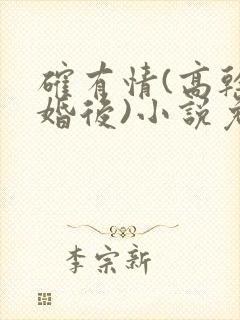 確有情(高幹
婚後)小說
李宗新